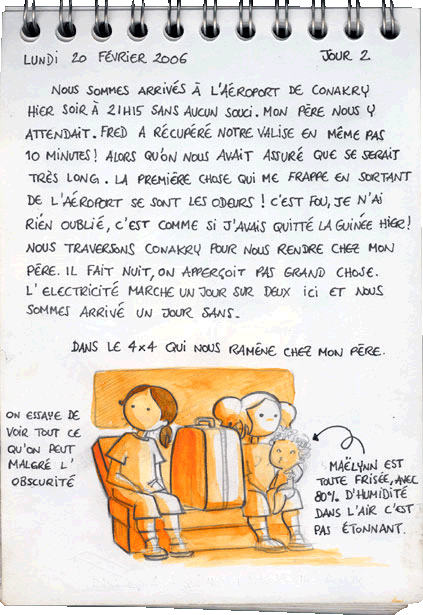 LUNDI 20 FÉVRIER 2006
JOUR 2
NOUS SOMMES ARRIVÉS À L'AÉROPORT DE CONAKRY
HIER SOIR À 21H15 SANS AUCUN SOUCI. MON PÈRE NOUS Y
ATTENDAIT. FRED A RÉCUPÉRÉ NOTRE VALISE EN MÊME PAS
10 MINUTES! ALORS QU'ON NOUS AVAIT ASSURÉ QUE SE SERAIT
TRÈS LONG. LA PREMIÈRE CHOSE QUI ME FRAPPE EN SORTANT
DE L'AÉROPORT SE SONT LES ODEURS! C'EST FOU, JE N'AI
RIEN OUBLIÉ, C'EST COMME SI J'AVAIS QUITTÉ LA GUINÉE HIER!
NOUS TRAVERSONS CONAKRY POUR NOUS RENDRE CHEZ MON
PÈRE. IL FAIT NUIT, ON APPERÇOIT PAS GRAND CHOSE.
L'ELECTRICITÉ MARCHE UN JOUR SUR DEUX ICI ET NOUS
SOMMES ARRIVÉ UN JOUR SANS.
DANS LE 4x4 QUI NOUS RAMÈNE CHEZ MON PÈRE.
ON ESSAYE DE
VOIR TOUT CE
QU'ON PEUT
MALGRÉ L'
OBSCURITÉ
MAËLYNN EST
TOUTE FRISÉE, AVEC
80% D'HUMIDITÉ
DANS L'AIR C'EST
PAS ÉTONNANT.